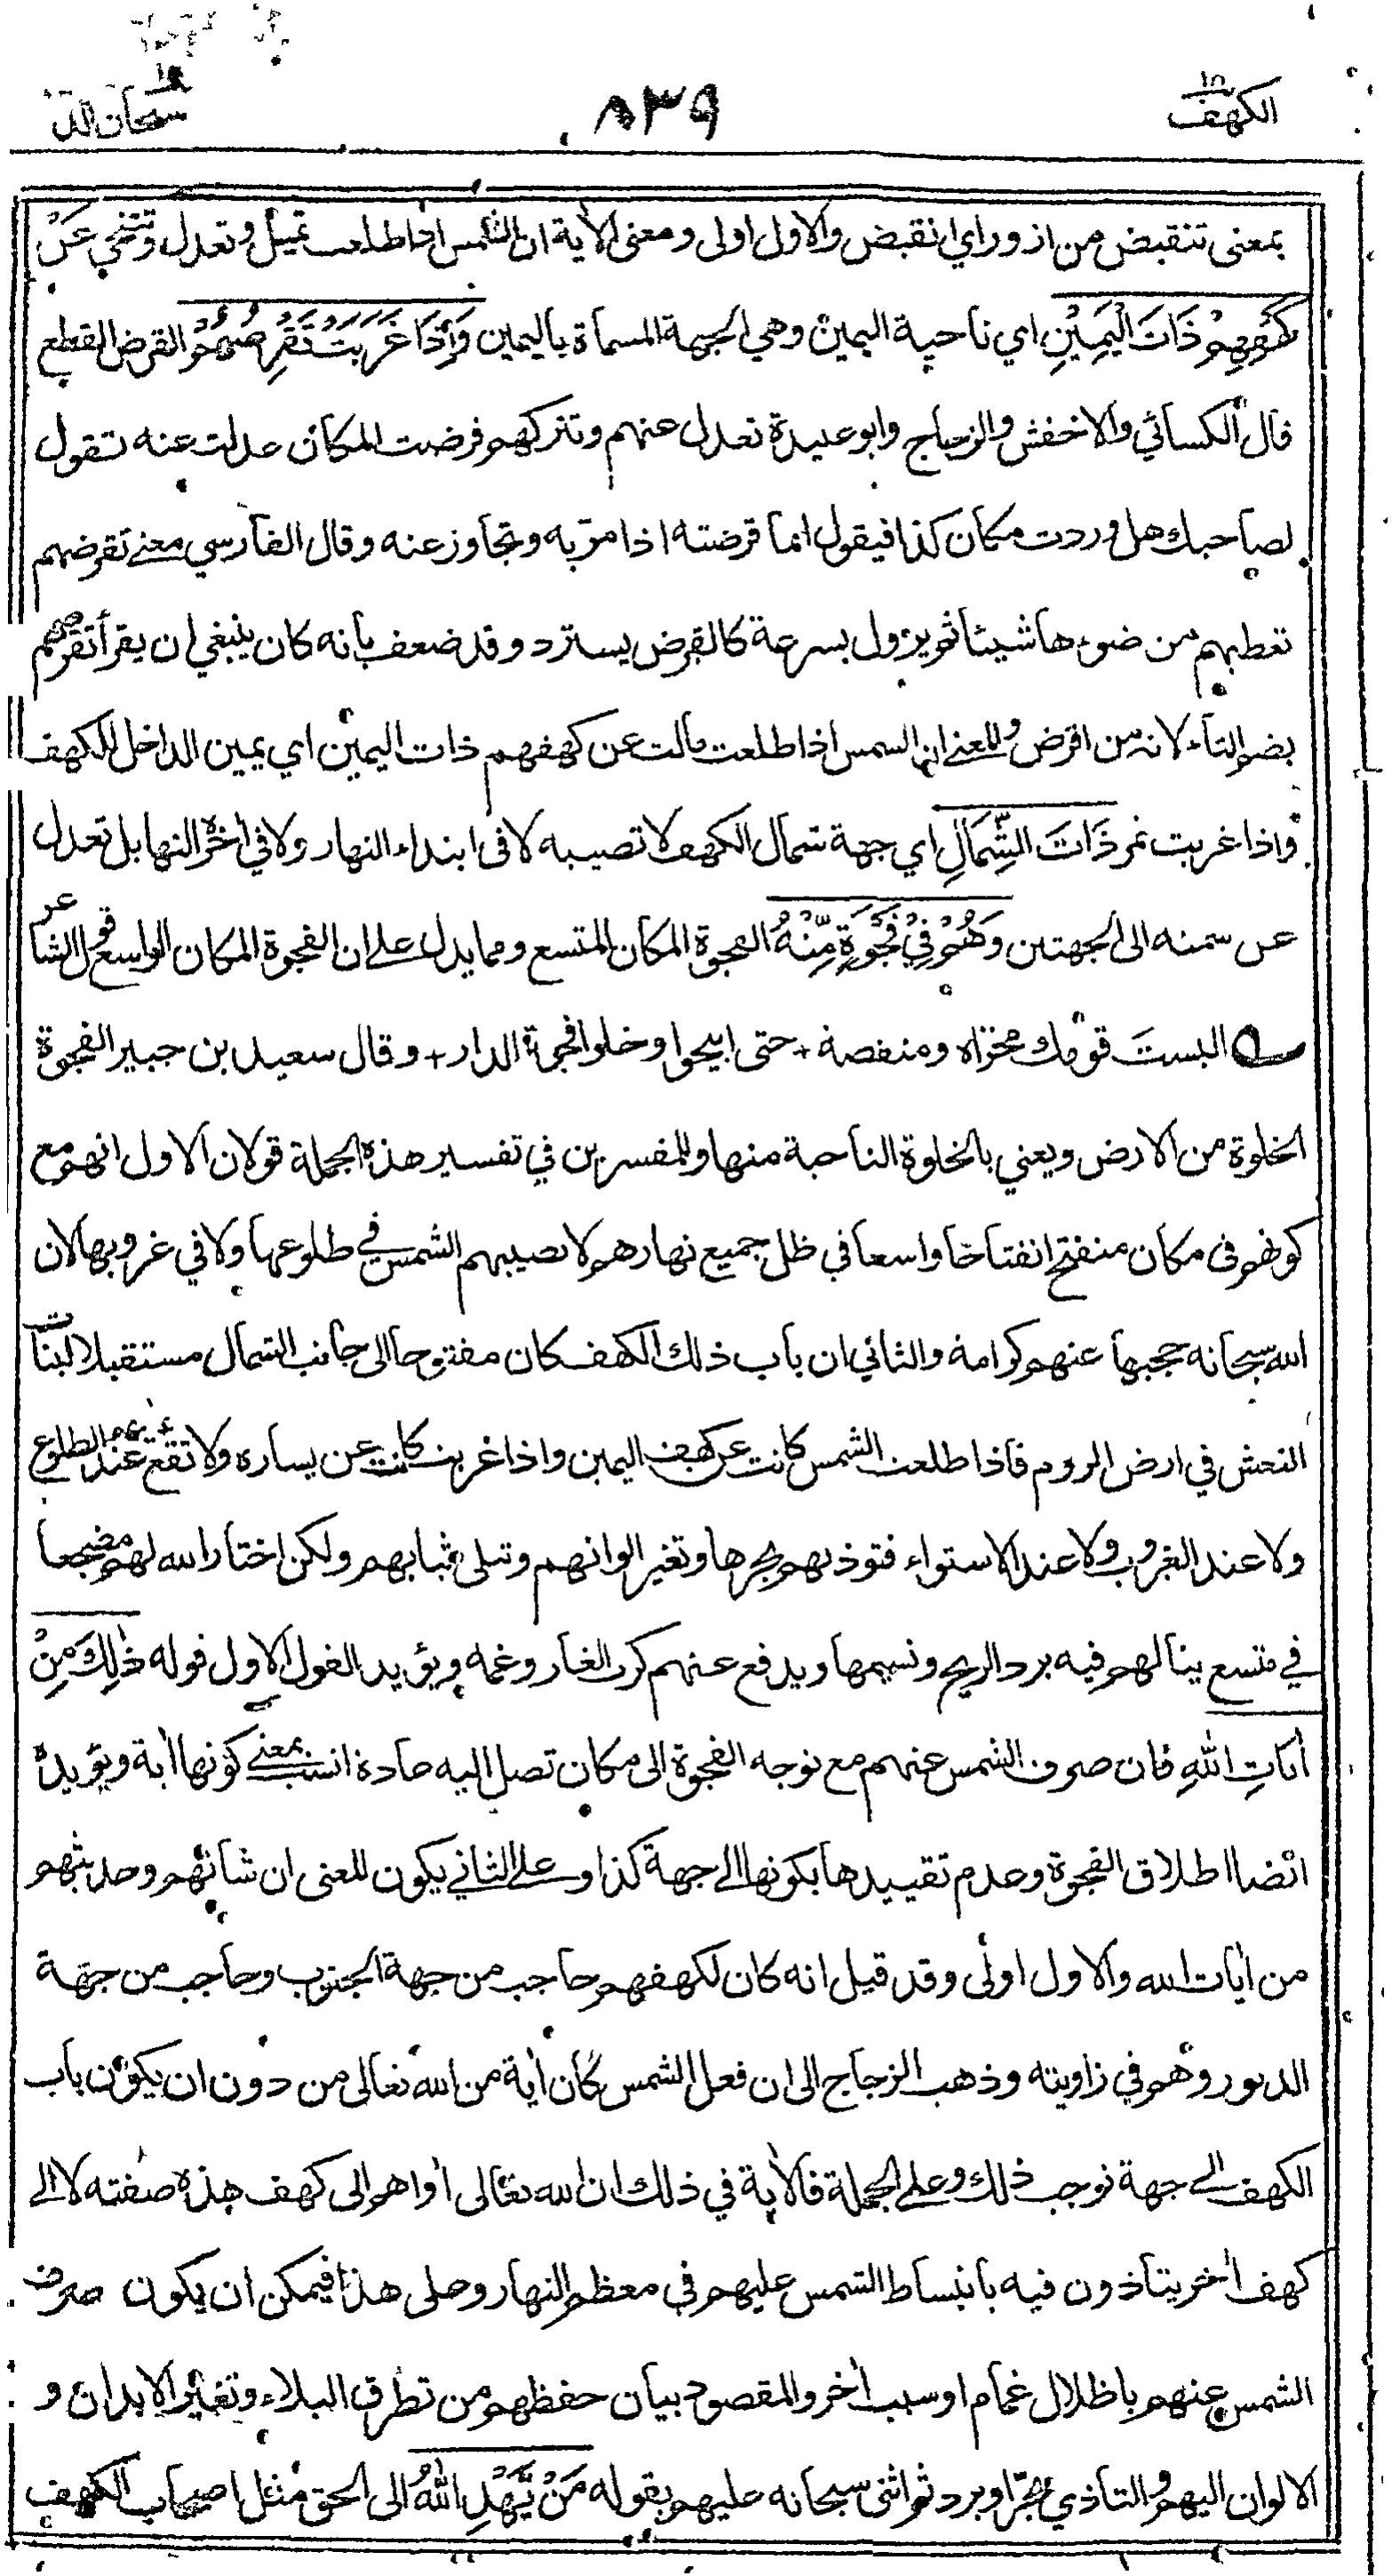 الكهف ١٨
٨٣٩
سبحان الذي ١٥
بمعنى تنقبض من ازور اي انقبض والاول اولى ومعنى الأية ان الشمس اذا طلعت تميل وتعدل وتتنحى عَنْ
كَهْفِهِمْ ذَاتَ الْيَمِيْنِ اي ناحية اليمين وهي الجهة المسماة باليمين وَاِذَا غَرَبَتْ تَقْرِضُهُمْ القرض القطع
قال الكسائي والاخفش والزجاج وابو عبيدة تعدل عنهم وتتركهم قرضت المكان عدلت عنه تقول
لصاحبك هل وردت مكان كذا فيقول انما قرضته اذا مرّ به وتجاوز عنه وقال الفارسي معنى تقرضهم
تعطيهم من ضوءها شيئا ثم يزول بسرعة كالقرض يسترد وقد ضعف بانه كان ينبغي ان يقرأ تقرضهم
بضم التاء لانه من اقرض والمعنى ان الشمس اذا طلعت مالت عن كهفهم ذات اليمين اي يمين الداخل للكهف
واذا غربت تمر ذَاتَ الشِّمَالِ اي جهة شمال الكهف لا تصيبه لا في ابتداء النهار ولا في أخر النهار بل تعدل
عن سمته الى الجهتين وَهُمْ فِيْ فَجْوَةٍ مِّنْهُ الفجوة المكان المتسع ومما يدل على ان الفجوة المكان الواسع قول الشاعر
ـه البست قومك مخزاة ومنقصة + حتى ابيحوا وخلوا فجوة الدار + وقال سعيد بن جبير الفجوة
الخلوة من الارض ويعني بالخلوة الناحية منها وللمفسرين في تفسير هذه الجملة قولان الاول انهم مع
كونهم في مكان منفتح انفتاحا واسعا في ظل جميع نهارهم لا تصيبهم الشمس في طلوعها ولا في غروبها لان
الله سبحانه حجبها عنهم كرامة والثاني ان باب ذلك الكهف كان مفتوحا الى جانب الشمال مستقبلا لبنات
النعش في ارض الروم فاذا طلعت الشمس كانت عن كهف اليمين واذا غربت كانت عن يساره ولا تقع عند الطلوع
ولا عند الغروب ولا عند الاستواء فتوذيهم بحرها وتغير الوانهم وتبلي ثيابهم ولكن اختار الله لهم مضجعا
في متسع ينالهم فيه برد الريح ونسيمها ويدفع عنهم كرب الغار وغمه ويؤيد القول الاول قوله ذٰلِكَ مِنْ
أيَاتِ اللّٰهِ فان صرف الشمس عنهم مع توجه الفجوة الى مكان تصل اليه عادة انسب بمعنى كونها أية ويؤيده
ايضا اطلاق الفجوة وعدم تقييدها بكونها الى جهة كذا وعلى الثاني يكون المعنى ان شانهم وحديثهم
من أيات الله والاول اولى وقد قيل انه كان لكهفهم حاجب من جهة الجنوب وحاجب من جهة
الدبور وهم في زاويته وذهب الزجاج الى ان فعل الشمس كان أية من الله تعالى من دون ان يكون باب
الكهف الى جهة توجب ذلك وعلى الجملة فالأية في ذلك ان الله تعالى أواهم الى كهف هذه صفته لا الى
كهف أخر يتاذون فيه بانبساط الشمس عليهم في معظم النهار وعلى هذا فيمكن ان يكون صرف
الشمس عنهم باظلال غمام او سبب أخر والمقصود بيان حفظهم من تطرق البلاء وتغير الابدان و
الالوان اليهم والتاذي بحرّ او برد ثم اثنى سبحانه عليهم بقوله مَنْ يَّهْدِ اللّٰهُ الى الحق مثل اصحاب الكهف